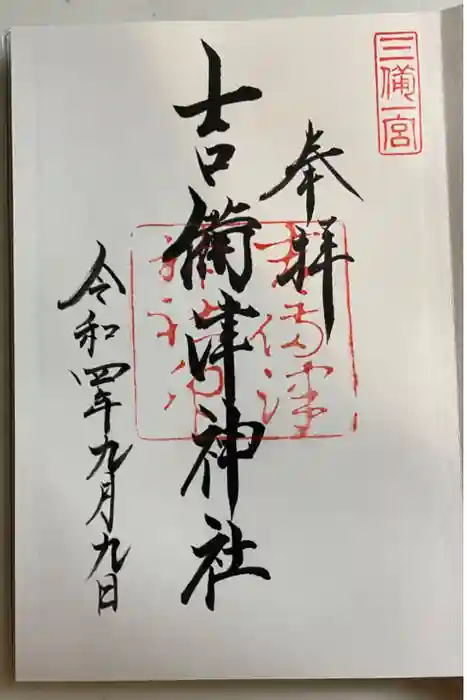 三備一宮
奉拝
吉備津神社
令和四年九月九日